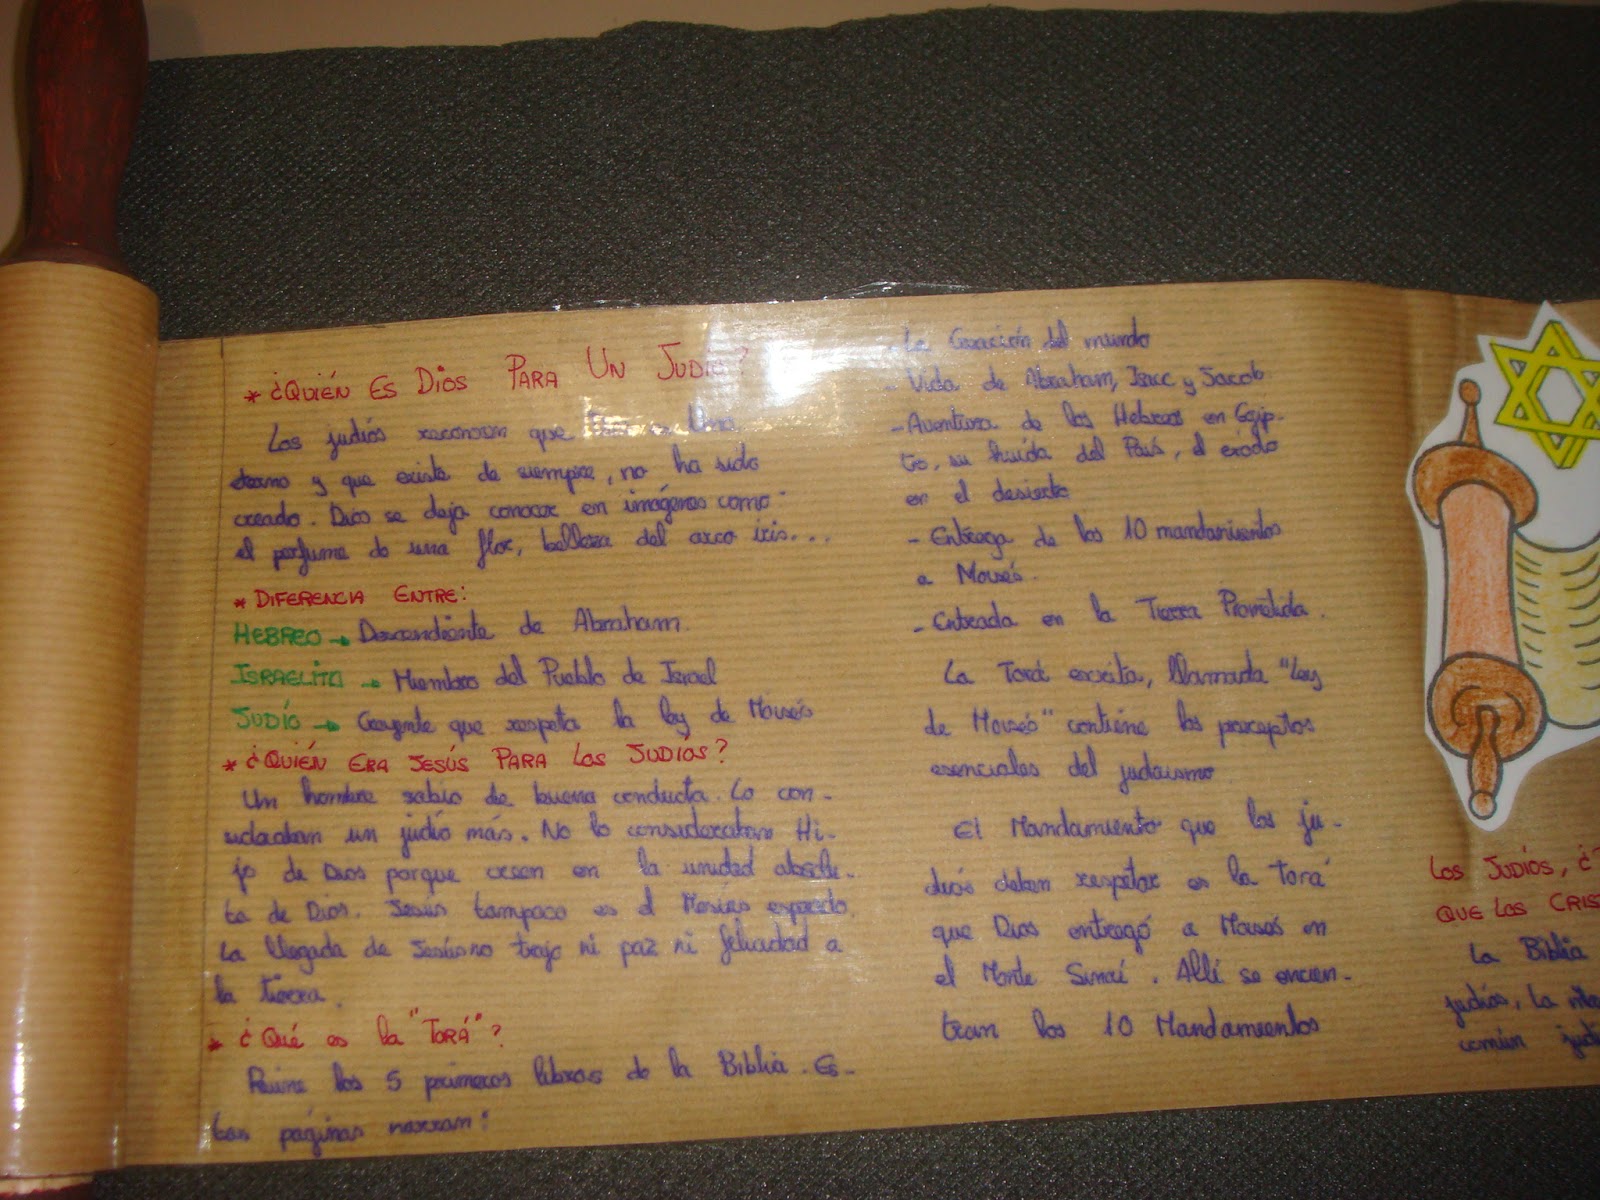 * ¿QUIÉN ES DIOS PARA UN JUDÍO?
Los judíos reconocen que Uno
eterno y que existe de siempre, no ha sido
creado. Dios se deja conocer en imágenes como
el perfume de una flor, belleza del arco iris...
* DIFERENCIA ENTRE:
HEBREO → Descendiente de Abraham.
ISRAELITA → Miembro del Pueblo de Israel
JUDÍO → Creyente que respeta la ley de Moisés
* ¿QUIÉN ERA JESÚS PARA LOS JUDÍOS?
Un hombre sabio de buena conducta. Lo con-
un judío más. No lo consideraban Hi-
jo de Dios porque creen en la unidad absolu-
ta de Dios. Jesús tampoco es el Mesías esperado.
La llegada de Jesús no trajo ni paz ni felicidad a
la tierra.
* ¿Qué es la "TORÁ"?
Reune los 5 primeros libros de la Biblia. Es-
tas páginas narran:
- La Creación del mundo
- Vida de Abraham, Isacc y Jacob
- Aventura de los Hebreos en Egip-
to, su huida del País, el exódo
en el desierto
- Entrega de los 10 mandamientos
a Moisés.
- Entrada en la Tierra Prometida.
La Torá escrita, llamada "Ley
de Moisés" contiene los preceptos
esenciales del judaismo
El Mandamiento que los ju-
díos deben respetar es la Torá
que Dios entregó a Moisés en
el Monte Sinaí. Allí se encuen-
tran los 10 Mandamientos
LOS JUDÍOS, ¿
QUE LOS CRIS
La Biblia
judíos, la
común judí